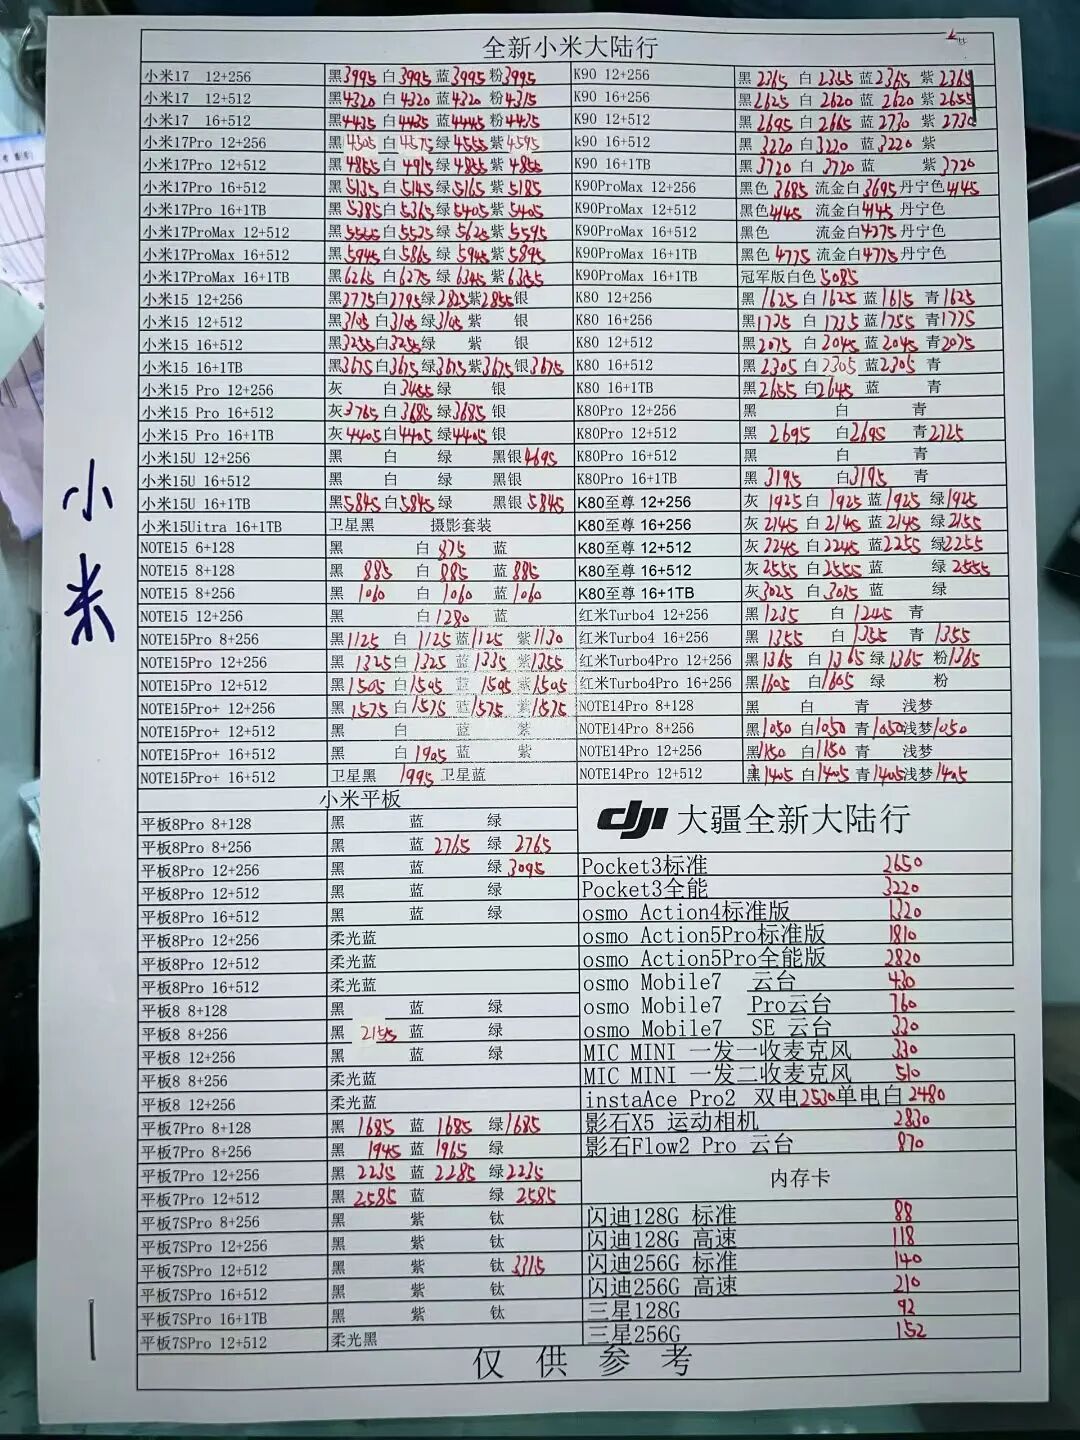 全新小米大陆行
小米17 12+256 黑3995 白3995 蓝3995 粉3995
小米17 12+512 黑4320 白4320 蓝4320 粉4315
小米17 16+512 黑4435 白4435 蓝4445 粉4435
小米17Pro 12+256 黑4505 白4575 绿4555 紫4595
小米17Pro 12+512 黑4855 白4915 绿4855 紫4855
小米17Pro 16+512 黑5135 白5145 绿5165 紫5185
小米17Pro 16+1TB 黑5385 白5365 绿5405 紫5405
小米17ProMax 12+512 黑5555 白5525 绿5625 紫5595
小米17ProMax 16+512 黑5945 白5865 绿5945 紫5895
小米17ProMax 16+1TB 黑6265 白6275 绿6345 紫6355
小米15 12+256 黑2775 白2795 绿2825 紫2855 银
小米15 12+512 黑3105 白3105 绿3105 紫 银
小米15 16+512 黑3255 白3255 绿 紫 银
小米15 16+1TB 黑3675 白3675 绿3675 紫3675 银3675
小米15 Pro 12+256 灰 白3455 绿 银
小米15 Pro 16+512 灰3765 白3685 绿3685 银
小米15 Pro 16+1TB 灰4405 白4405 绿4405 银
小米15U 12+256 黑 白 绿 黑银4695
小米15U 16+512 黑 白 绿 黑银
小米15U 16+1TB 黑5845 白5845 绿 黑银5845
小米15Uitra 16+1TB 卫星黑 摄影套装
NOTE15 6+128 黑 白875 蓝
NOTE15 8+128 黑885 白885 蓝885
NOTE15 8+256 黑1060 白1060 蓝1060
NOTE15 12+256 黑 白1280 蓝
NOTE15Pro 8+256 黑1125 白1125 蓝1125 紫1130
NOTE15Pro 12+256 黑1325 白1325 蓝1335 紫1355
NOTE15Pro 12+512 黑1505 白1505 蓝1505 紫1505
NOTE15Pro+ 12+256 黑1575 白1575 蓝1575 紫1575
NOTE15Pro+ 12+512 黑 白 蓝 紫
NOTE15Pro+ 16+512 黑 白1905 蓝 紫
NOTE15Pro+ 16+512 卫星黑1995 卫星蓝
K90 12+256 黑2365 白2355 蓝2365 紫2365
K90 16+256 黑2625 白2620 蓝2620 紫2655
K90 12+512 黑2695 白2665 蓝2730 紫2730
k90 16+512 黑3220 白3220 蓝3220 紫
K90 16+1TB 黑3720 白3720 蓝 紫3720
K90ProMax 12+256 黑色3685 流金白3695 丹宁色4145
K90ProMax 12+512 黑色4145 流金白4145 丹宁色
K90ProMax 16+512 黑色 流金白4275 丹宁色
K90ProMax 16+1TB 黑色4775 流金白4775 丹宁色
K90ProMax 16+1TB 冠军版白色5085
K80 12+256 黑1625 白1625 蓝1615 青1625
K80 16+256 黑1725 白1735 蓝1755 青1775
K80 12+512 黑2075 白2045 蓝2045 青2075
K80 16+512 黑2305 白2305 蓝2305 青
K80 16+1TB 黑2655 白2645 蓝 青
K80Pro 12+256 黑 白 青
K80Pro 12+512 黑2695 白2695 青2725
K80Pro 16+512 黑 白 青
K80Pro 16+1TB 黑3195 白3195 青
K80至尊 12+256 灰1925 白1925 蓝1925 绿1925
K80至尊 16+256 灰2145 白2145 蓝2145 绿2155
K80至尊 12+512 灰2245 白2245 蓝2255 绿2255
K80至尊 16+512 灰2555 白2555 蓝 绿2555
K80至尊 16+1TB 灰3025 白3025 蓝 绿
红米Turbo4 12+256 黑1235 白1245 青
红米Turbo4 16+256 黑1355 白1355 青1355
红米Turbo4Pro 12+256 黑1365 白1365 绿1365 粉1365
红米Turbo4Pro 16+256 黑1605 白1605 绿 粉
NOTE14Pro 8+128 黑 白 青 浅梦
NOTE14Pro 8+256 黑1050 白1050 青1050 浅梦1050
NOTE14Pro 12+256 黑1150 白1150 青 浅梦
NOTE14Pro 12+512 黑1405 白1405 青1405 浅梦1405
小米
小米平板
平板8Pro 8+128 黑 蓝 绿
平板8Pro 8+256 黑 蓝2765 绿2765
平板8Pro 12+256 黑 蓝 绿3095
平板8Pro 12+512 黑 蓝 绿
平板8Pro 16+512 黑 蓝 绿
平板8Pro 12+256 柔光蓝
平板8Pro 12+512 柔光蓝
平板8Pro 16+512 柔光蓝
平板8 8+128 黑 蓝 绿
平板8 8+256 黑2155 蓝 绿
平板8 12+256 黑 蓝 绿
平板8 8+256 柔光蓝
平板8 12+256 柔光蓝
平板7Pro 8+128 黑1685 蓝1685 绿1685
平板7Pro 8+256 黑1945 蓝1965 绿
平板7Pro 12+256 黑2235 蓝2285 绿2235
平板7Pro 12+512 黑2585 蓝 绿2585
平板7SPro 8+256 黑 紫 钛
平板7SPro 12+256 黑 紫 钛
平板7SPro 12+512 黑 紫 钛3315
平板7SPro 16+512 黑 紫 钛
平板7SPro 16+1TB 黑 紫 钛
平板7SPro 12+512 柔光黑
dji 大疆全新大陆行
Pocket3标准 2650
Pocket3全能 3220
osmo Action4标准版 1320
osmo Action5Pro标准版 1810
osmo Action5Pro全能版 2820
osmo Mobile7 云台 430
osmo Mobile7 Pro云台 760
osmo Mobile7 SE 云台 330
MIC MINI 一发一收麦克风 330
MIC MINI 一发二收麦克风 510
instaAce Pro2 双电2530 单电白2480
影石X5 运动相机 2830
影石Flow2 Pro 云台 870
内存卡
闪迪128G 标准 88
闪迪128G 高速 118
闪迪256G 标准 140
闪迪256G 高速 210
三星128G 92
三星256G 152
仅供参考